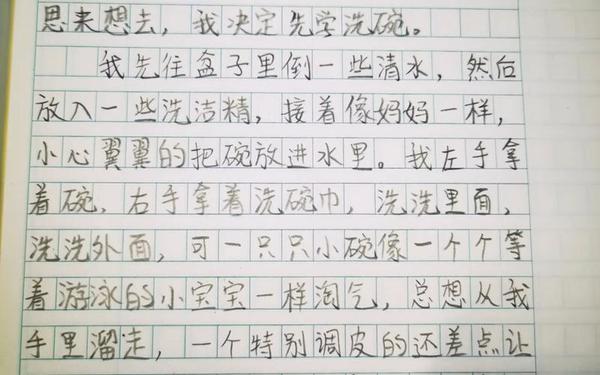 思来想去，我决定先学洗碗。
我先往盆子里倒一些清水，然后
放入一些洗洁精，接着像妈妈一样，
小心翼翼的把碗放进水里。我左手拿
着碗，右手拿着洗碗巾，洗洗里面，
洗洗外面，可一只只小碗像一个个等
着游泳的小宝宝一样淘气，总想从我
手里溜走，一个特别调皮的还差点让